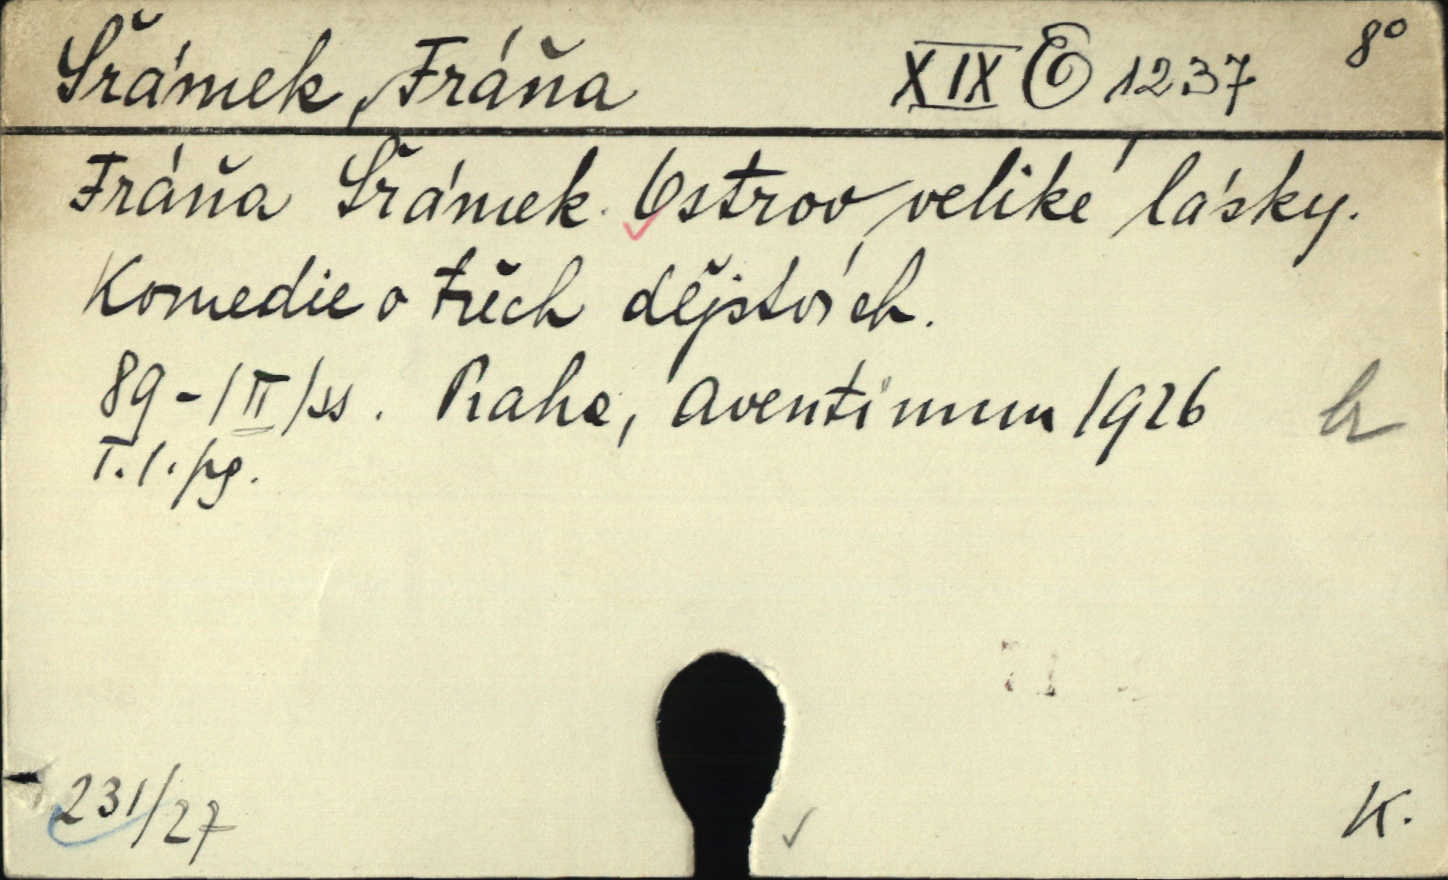 Šrámek, Fráňa XIX E 1237 8°
Fráňa Šrámek. Ostrov veliké lásky.
Komedie o třech dějstvích.
89-/II/ss. Praha, Aventinum 1926
T.1.pg.
231/27 K.